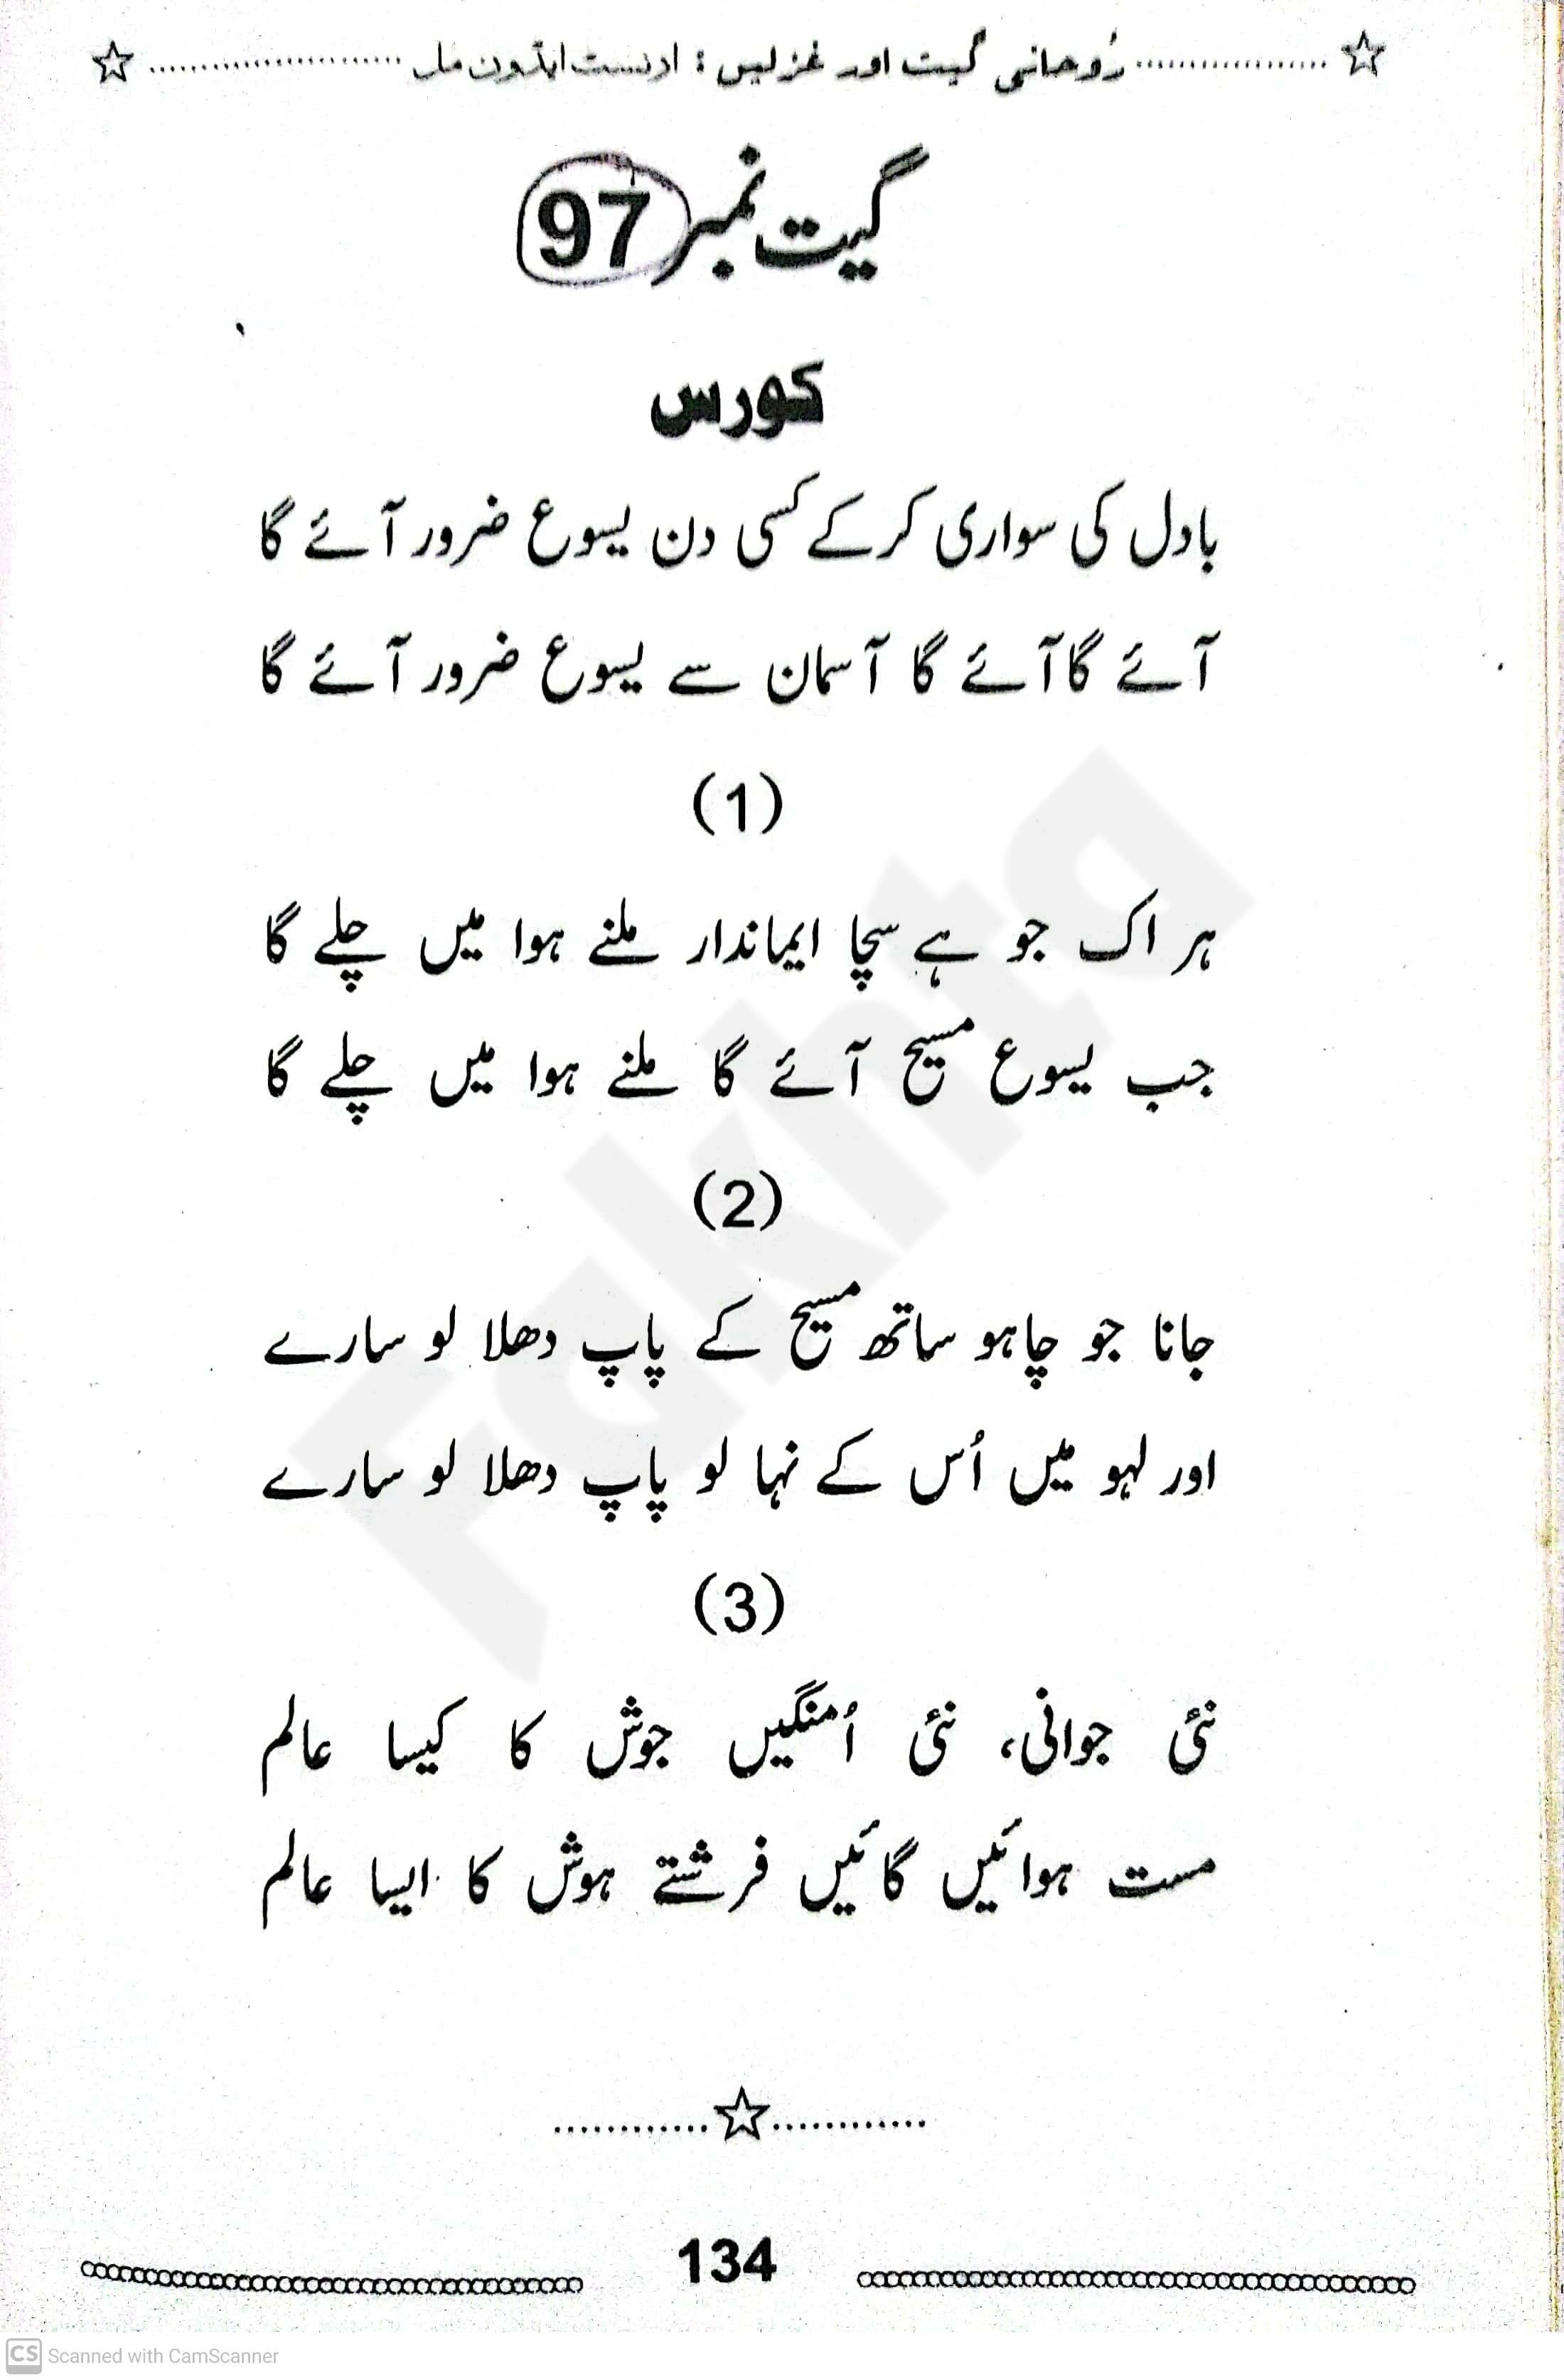 رُوحانی گیت اور غزلیں : ارنسٹ ایڈون مل
گیت نمبر 97
کورس
بادل کی سواری کر کے کسی دن یسوع ضرور آئے گا
آئے گا آئے گا آسمان سے یسوع ضرور آئے گا
(1)
ہر اک جو ہے سچا ایماندار ملنے ہوا میں چلے گا
جب یسوع مسیح آئے گا ملنے ہوا میں چلے گا
(2)
جانا جو چاہو ساتھ مسیح کے پاپ دھلا لو سارے
اور لہو میں اُس کے نہا لو پاپ دھلا لو سارے
(3)
نئی جوانی، نئی اُمنگیں جوش کا کیسا عالم
مست ہوائیں گائیں فرشتے ہوش کا ایسا عالم
134
Fakhta
CS Scanned with CamScanner